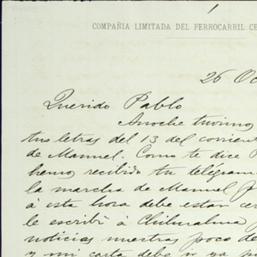 COMPAÑIA LIMITADA DEL FERROCARRIL CE
26 Oc
Querido Pablo
Anoche tuvimos
tus letras del 13 del corrien
de Manuel. Como te dice
hemos recibido tu telégram
la marcha de Manuel p
á esta hora debe están cer
le escribí á Chihualma
noticias nuestras poco de
y mi carta debe